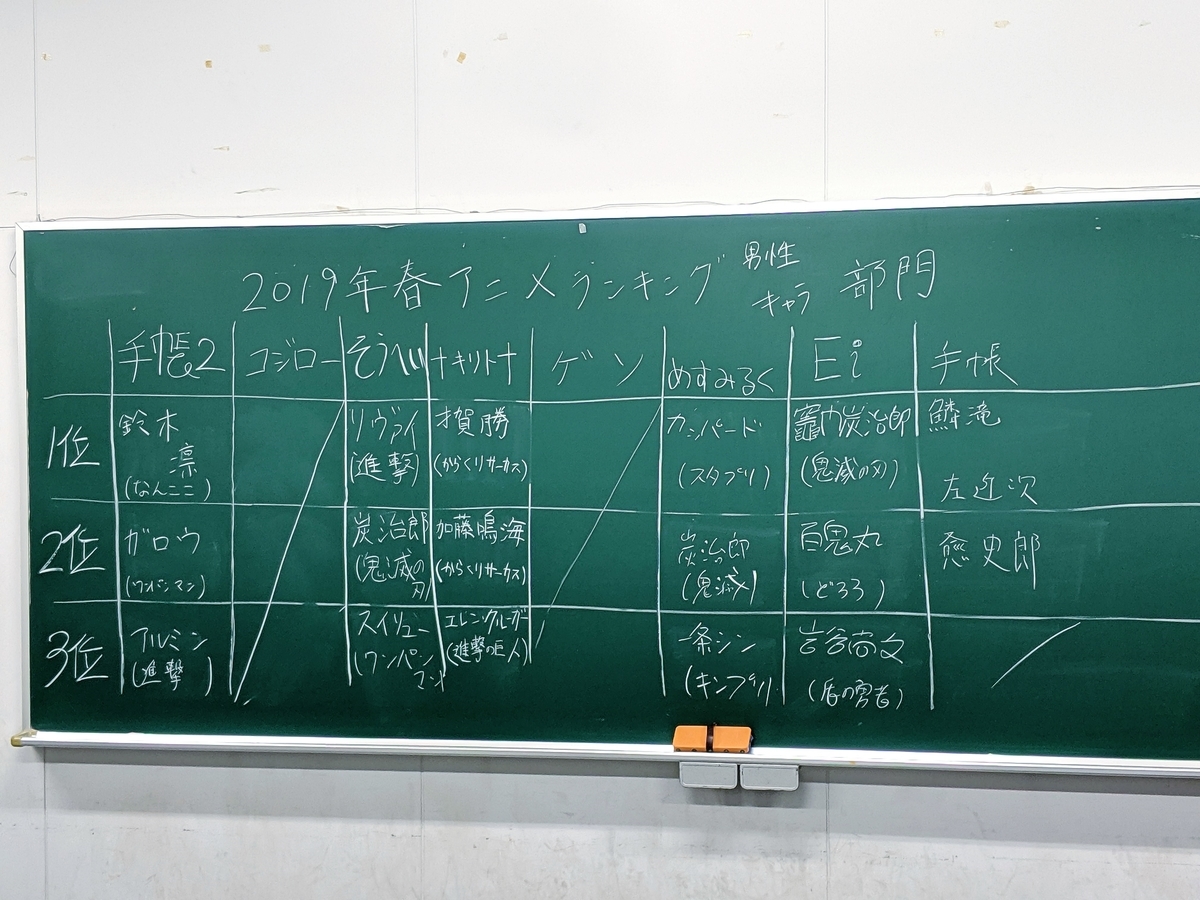 2019年春アニメランキング 男性キャラ 部門
手帳2 コジロー そうへい †キリト† ゲソ めすみるく Ei 手帳
1位
鈴木
凛
(なんここ)
リヴァイ
(進撃)
才賀勝
(からくりサーカス)
カッパード
(スタプリ)
竈門炭治郎
(鬼滅の刃)
鱗滝
左近次
2位
ガロウ
(ワンパンマン)
炭治郎
(鬼滅の
刃)
加藤鳴海
(からくりサーカス)
炭治郎
(鬼滅)
百鬼丸
(どろろ)
愈史郎
3位
アルミン
(進撃)
スイリュー
(ワンパン
マン)
エレンクルーガー
(進撃の巨人)
一条シン
(キンプリ)
岩谷尚文
(盾の勇者)